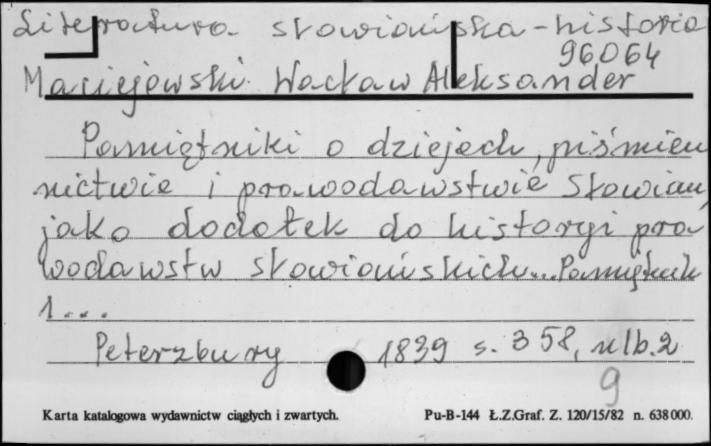 Literatura słowiańska - historia
96064
Maciejowski Wacław Aleksander
Pamiętniki o dziejach, piśmien
nictwie i prawodawstwie Słowian,
jako dodatek do historyi pra
wodawstw słowiańskich... Pamiętnik
1...
Peterzburg 1839 s. 358, nlb. 2
9
Karta katalogowa wydawnictw ciągłych i zwartych. Pu-B-144 Ł.Z.Graf. Z. 120/15/82 n. 638000.